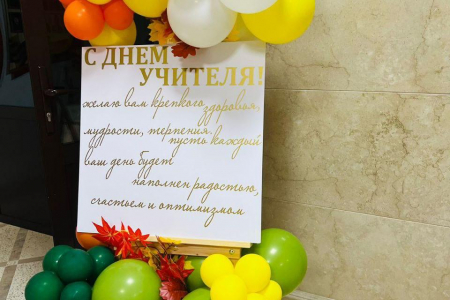 С ДНЕМ
УЧИТЕЛЯ!
желаю вам крепкого
здоровья,
мудрости, терпения,
пусть каждый
ваш день будет
наполнен радостью,
счастьем и оптимизмом